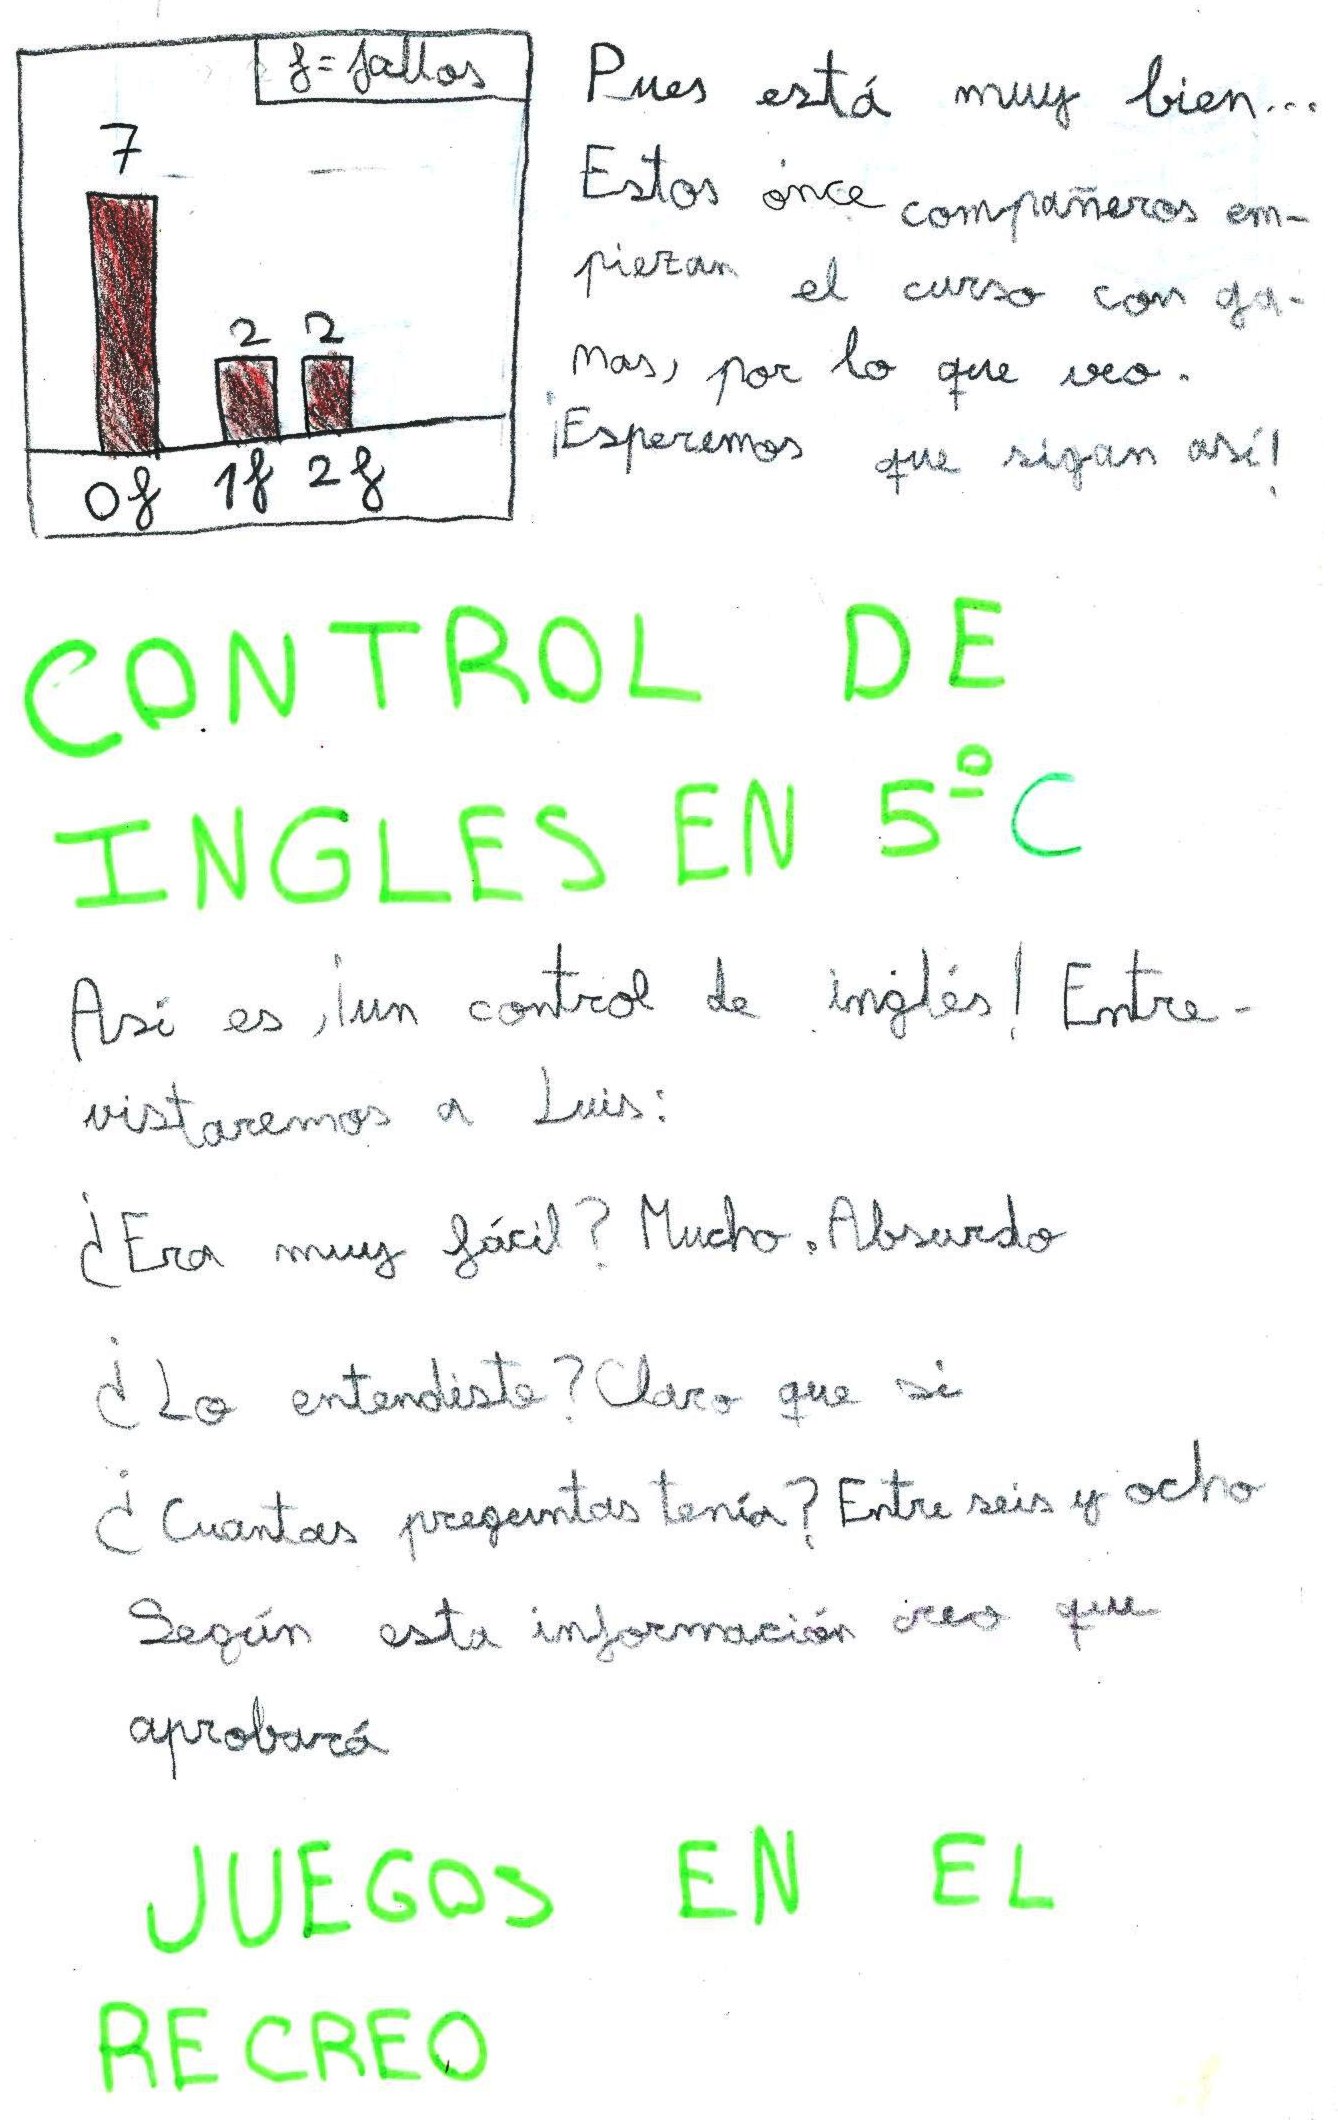 f=fallos
7
2 2
0f 1f 2f
Pues está muy bien...
Estos once compañeros em-
piezan el curso con ga-
nas, por lo que veo.
¡Esperemos que sigan así!
CONTROL DE
INGLES EN 5º C
Así es, ¡un control de inglés! Entre-
vistaremos a Luis:
¿Era muy fácil? Mucho. Absurdo
¿Lo entendiste? Claro que si
¿Cuantas preguntas tenía? Entre seis y ocho
Según esta información creo que
aprobará
JUEGOS EN EL
RECREO